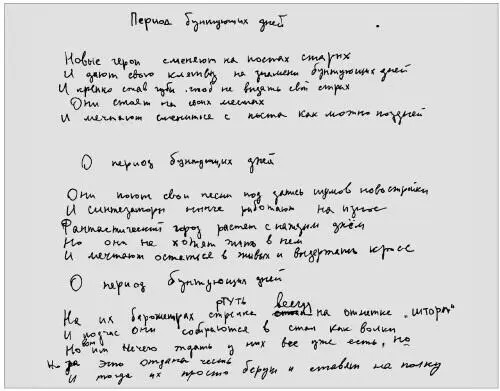 Период бунтующих дней
Новые герои сменяют на постах старых
И дают свою клятву на знамени бунтующих дней
И крепко сжав губы, чтоб не выдать свой страх
Они стоят на своих местах
И мечтают смениться с поста как можно поздней
О период бунтующих дней
Они поют свои песни под запись шумов новостройки
И синтезаторы нынче работают на износ
Фантастический город растет с каждым днём
Но они не хотят жить в нем
И мечтают остаться в живых и выдержать кросс
О период бунтующих дней
ртуть всегда
На их барометрах стрелка на отметке „шторм"
И подчас они собираются в стаи как волки
Но вом им нечего ждать у них все уже есть, но
Но за это отдана честь
И тогда их просто берут и ставят на полку